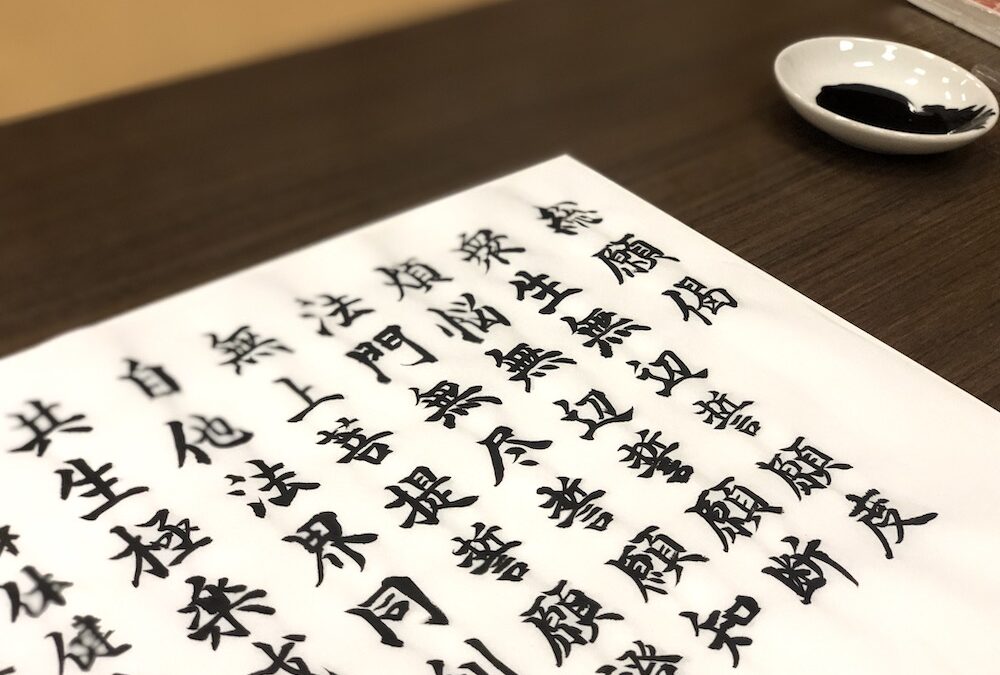 総願偈
衆生無辺誓願度
煩悩無辺誓願断
法門無尽誓願知
無上菩提誓願證
自他法界同利
共生極楽成
体健